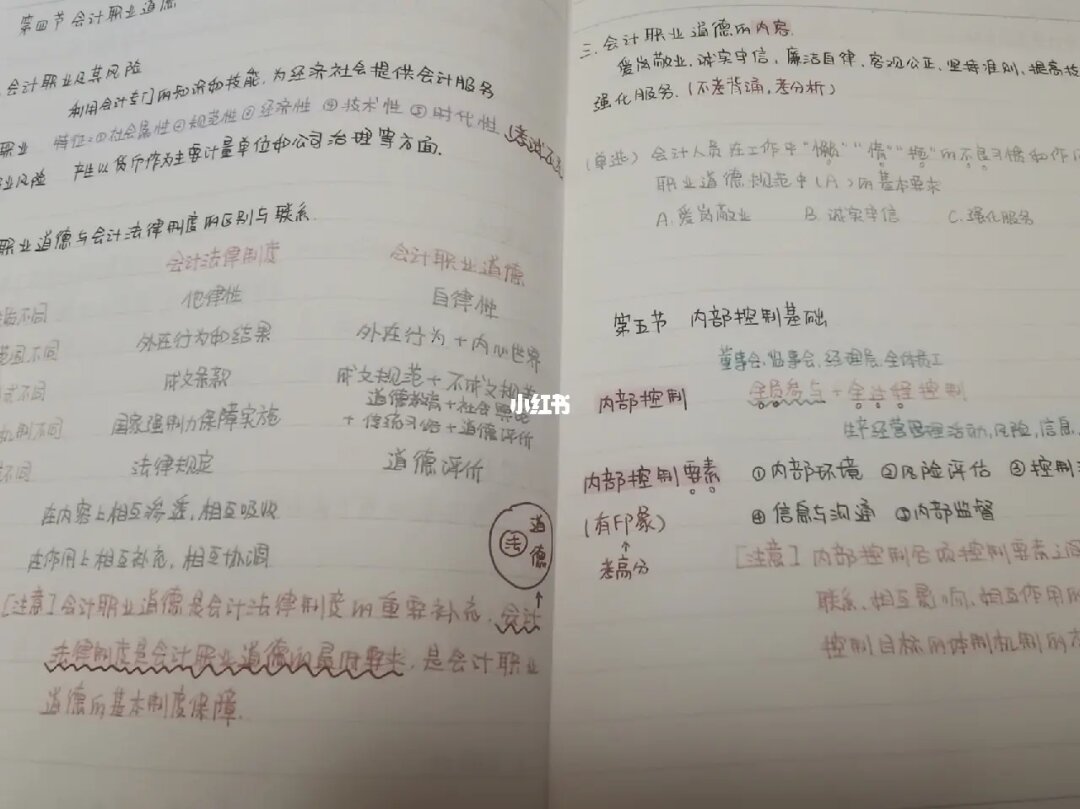 第四节 会计职业道德
会计职业及其风险
利用会计专门的知识和技能,为经济社会提供会计服务
职业 特征:①社会属性②规范性③经济性④技术性⑤时代性
业风险 产生以货币作为主要计量单位和公司治理等方面.
职业道德与会计法律制度的区别与联系.
会计法律制度 会计职业道德
不同 他律性 自律性
范围不同 外在行为和结果 外在行为+内心世界
式不同 成文条款 成文规范+不成文规范
机制不同 国家强制力保障实施 道德教育+社会舆论
+传统习惯+道德评价
不同 法律规定 道德评价
在内容上相互渗透,相互吸收
在作用上相互补充,相互协调
法 道德
[注意]会计职业道德是会计法律制度的重要补充,会计
法律制度是会计职业道德的最低要求,是会计职业
道德的基本制度保障.
三.会计职业道德的内容.
爱岗敬业,诚实守信,廉洁自律,客观公正,坚持准则,提高技
强化服务.(不考背诵,考分析)
(单选)会计人员在工作中"懒""惰""拖"的不良习惯和作风
职业道德规范中(A)的基本要求
A.爱岗敬业 B.诚实守信 C.强化服务
第五节 内部控制基础
董事会、监事会、经理层、全体员工
内部控制 全员参与+全过程控制
生产经营管理活动,风险,信息,
内部控制要素 ①内部环境 ②风险评估 ③控制
(有印象) ④信息与沟通 ⑤内部监督
考高分
[注意]内部控制各项控制要素之间
联系,相互影响,相互作用的
控制目标的体制机制的
小红书